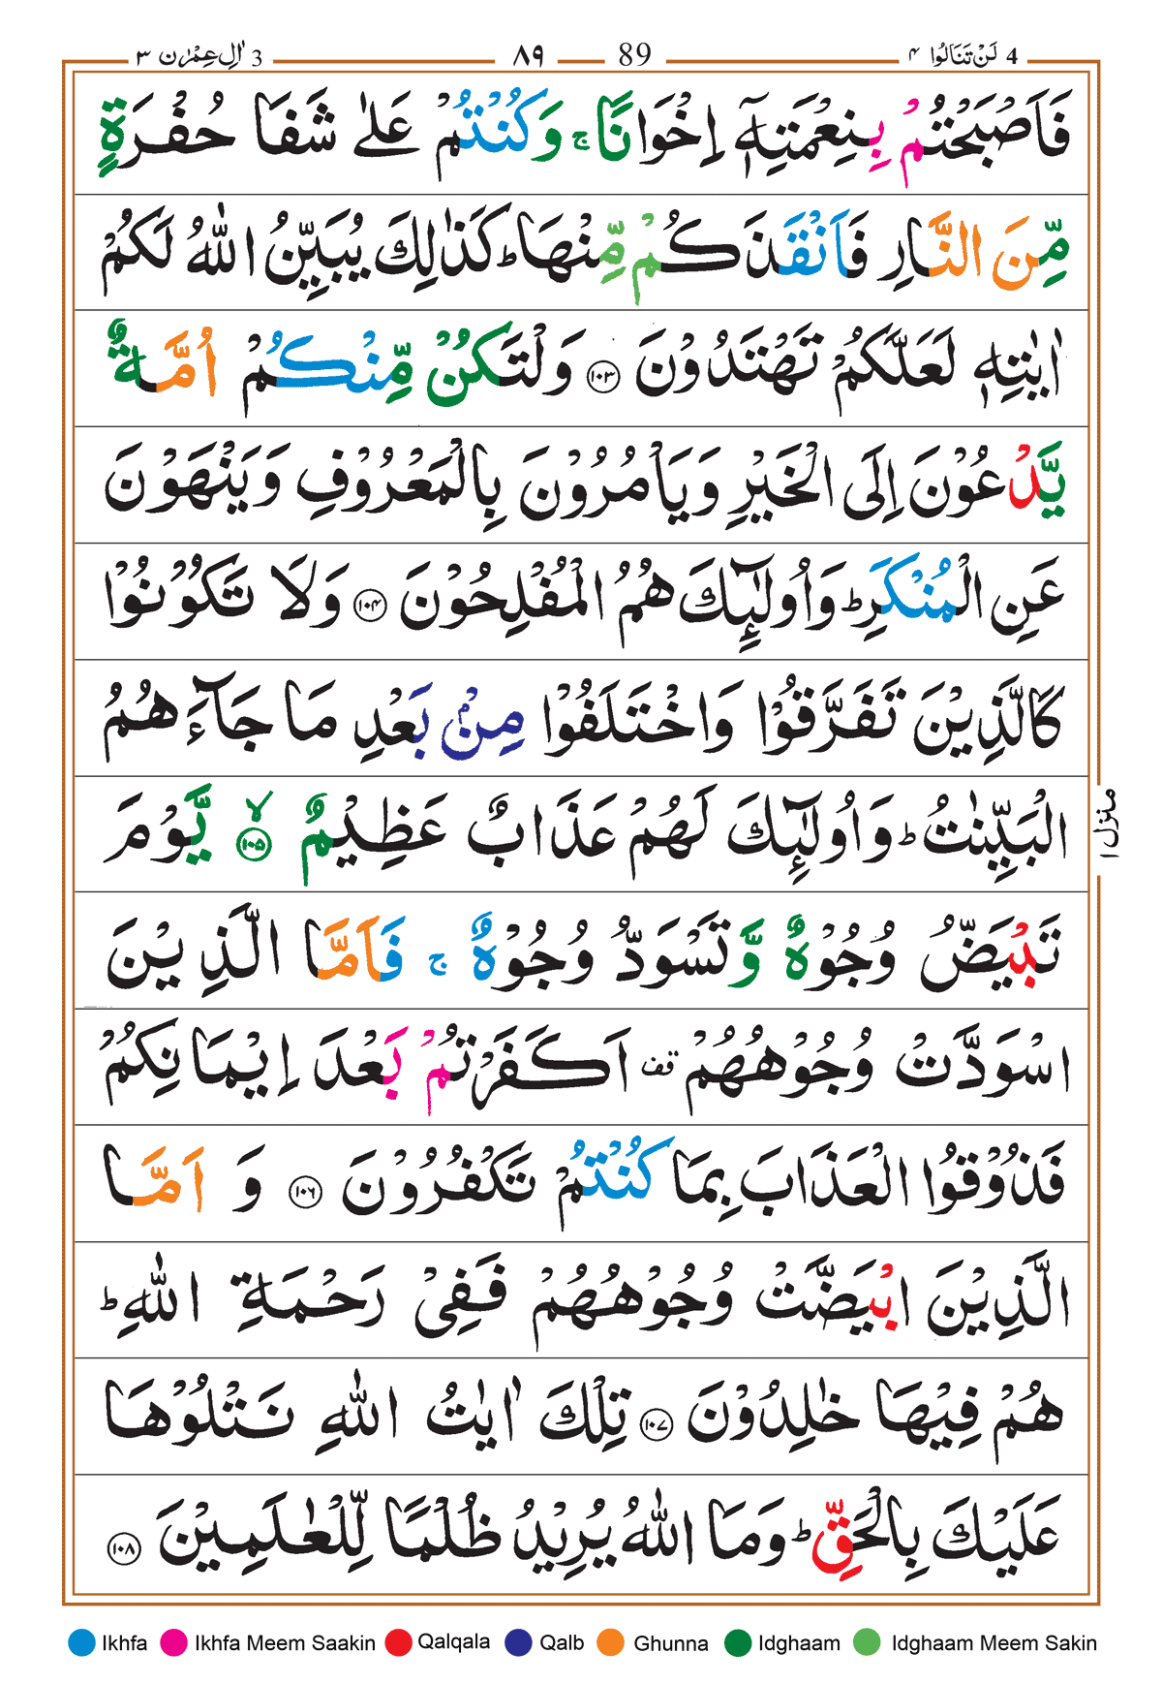 4 لَنْ تَنَالُوا ٤ 89 ٨٩ 3 اٰلِ عِمْرٰن ٣
فَاَصْبَحْتُمْ بِنِعْمَتِهٖۤ اِخْوَانًا ۚ وَكُنْتُمْ عَلٰى شَفَا حُفْرَةٍ
مِّنَ النَّارِ فَاَنْقَذَكُمْ مِّنْهَا ؕ كَذٰلِكَ يُبَيِّنُ اللّٰهُ لَكُمْ
اٰيٰتِهٖ لَعَلَّكُمْ تَهْتَدُوْنَ ﴿١٠٣﴾ وَلْتَكُنْ مِّنْكُمْ اُمَّةٌ
يَّدْعُوْنَ اِلَى الْخَيْرِ وَيَاْمُرُوْنَ بِالْمَعْرُوْفِ وَيَنْهَوْنَ
عَنِ الْمُنْكَرِ ؕ وَاُولٰٓئِكَ هُمُ الْمُفْلِحُوْنَ ﴿١٠٤﴾ وَلَا تَكُوْنُوْا
كَالَّذِيْنَ تَفَرَّقُوْا وَاخْتَلَفُوْا مِنْۢ بَعْدِ مَا جَآءَهُمُ
الْبَيِّنٰتُ ؕ وَاُولٰٓئِكَ لَهُمْ عَذَابٌ عَظِيْمٌ ﴿١٠٥﴾ ۙ يَّوْمَ
تَبْيَضُّ وُجُوْهٌ وَّتَسْوَدُّ وُجُوْهٌ ۚ فَاَمَّا الَّذِيْنَ
اسْوَدَّتْ وُجُوْهُهُمْ قف اَكَفَرْتُمْ بَعْدَ اِيْمَانِكُمْ
فَذُوْقُوا الْعَذَابَ بِمَا كُنْتُمْ تَكْفُرُوْنَ ﴿١٠٦﴾ وَ اَمَّا
الَّذِيْنَ ابْيَضَّتْ وُجُوْهُهُمْ فَفِىْ رَحْمَةِ اللّٰهِ ؕ
هُمْ فِيْهَا خٰلِدُوْنَ ﴿١٠٧﴾ تِلْكَ اٰيٰتُ اللّٰهِ نَتْلُوْهَا
عَلَيْكَ بِالْحَقِّ ؕ وَمَا اللّٰهُ يُرِيْدُ ظُلْمًا لِّلْعٰلَمِيْنَ ﴿١٠٨﴾
منزل ١
Ikhfa Ikhfa Meem Saakin Qalqala Qalb Ghunna Idghaam Idghaam Meem Sakin